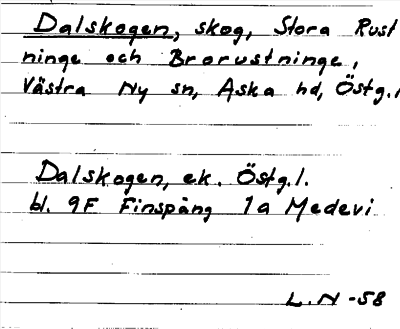 Dalskogen, skog, Stora Rust
ninge och Brorustninge,
Västra Ny sn, Aska hd, Östg.l
Dalskogen, ek. Östg.l.
bl. 9F Finspång 1a Medevi
L.N -58